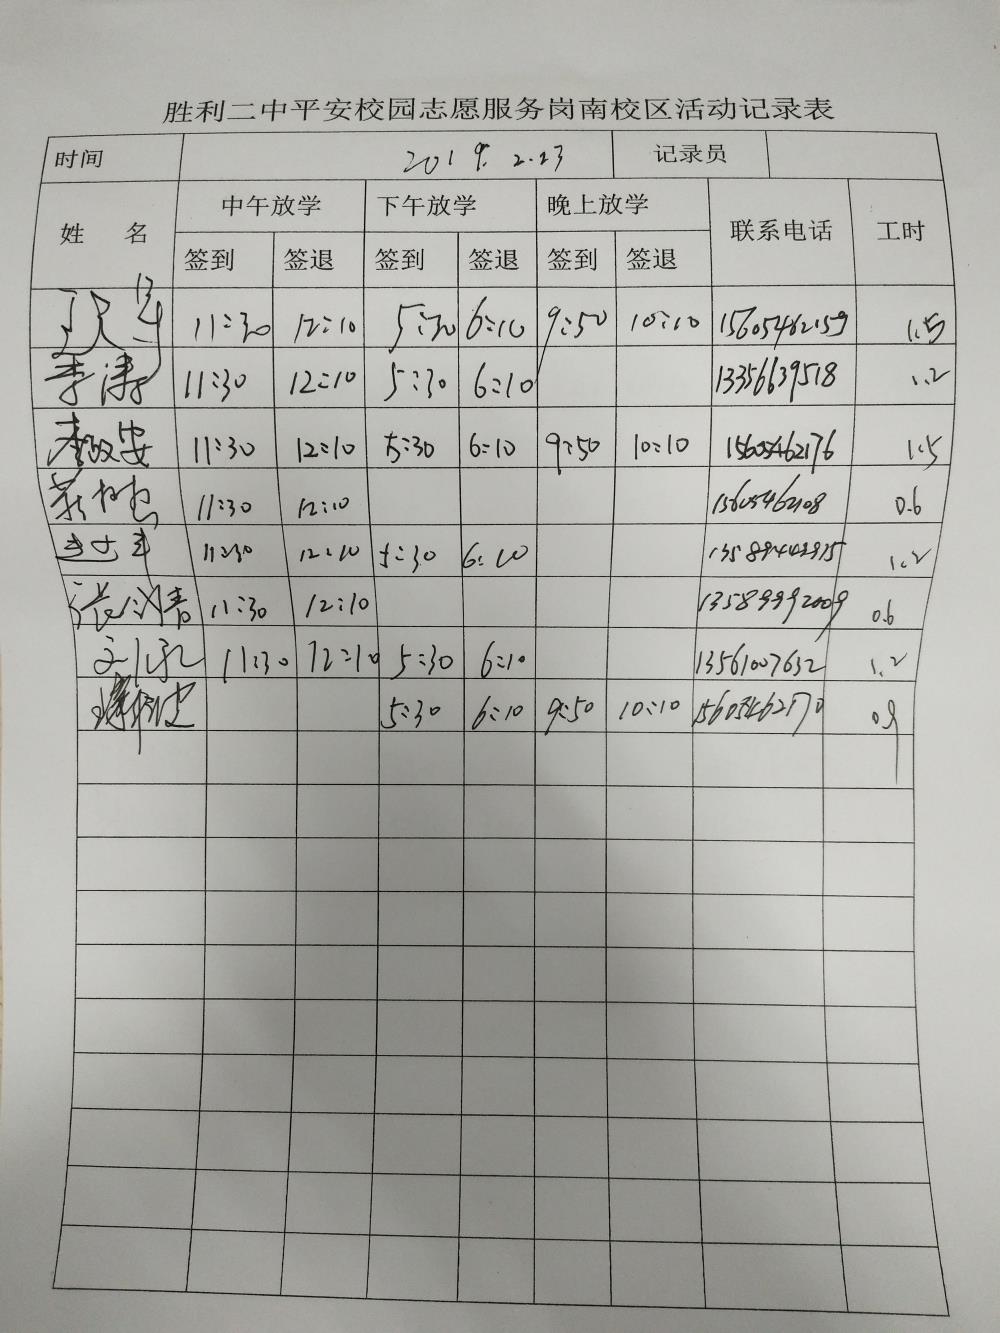 胜利二中平安校园志愿服务岗南校区活动记录表
时间 2019.2.23 记录员
姓 名 中午放学 下午放学 晚上放学 联系电话 工时
签到 签退 签到 签退 签到 签退
11:30 12:10 5:30 6:10 9:50 10:10 15605462159 1.5
李涛 11:30 12:10 5:30 6:10 13356639518 1.2
李政安 11:30 12:10 5:30 6:10 9:50 10:10 15605462176 1.5
11:30 12:10 15605462108 0.6
11:30 12:10 5:30 6:10 1.2
11:30 12:10 13589992009 0.6
11:30 12:10 5:30 6:10 13561007632 1.2
5:30 6:10 9:50 10:10 15605462170 0.9